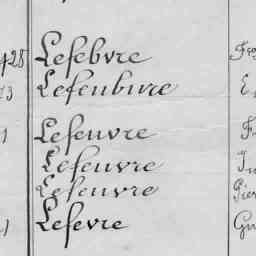 428 Lefebvre
73 Lefenbure
1 Lefeuvre
Lefeuvre
Lefeuvre
41 Lefevre